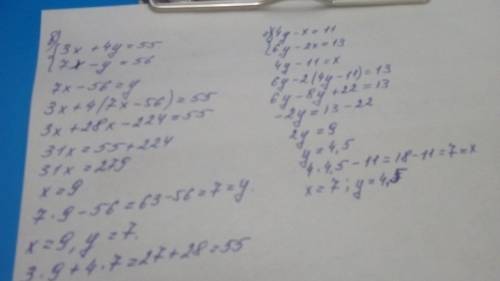 б)
{3x + 4y = 55
{7x - y = 56
7x - 56 = y
3x + 4(7x - 56) = 55
3x + 28x - 224 = 55
31x = 55 + 224
31x = 279
x = 9
7 · 9 - 56 = 63 - 56 = 7 = y.
x = 9, y = 7.
3 · 9 + 4 · 7 = 27 + 28 = 55
{4y - x = 11
{6y - 2x = 13
4y - 11 = x
6y - 2(4y - 11) = 13
6y - 8y + 22 = 13
-2y = 13 - 22
2y = 9
y = 4,5
4 · 4,5 - 11 = 18 - 11 = 7 = x
x = 7; y = 4,5